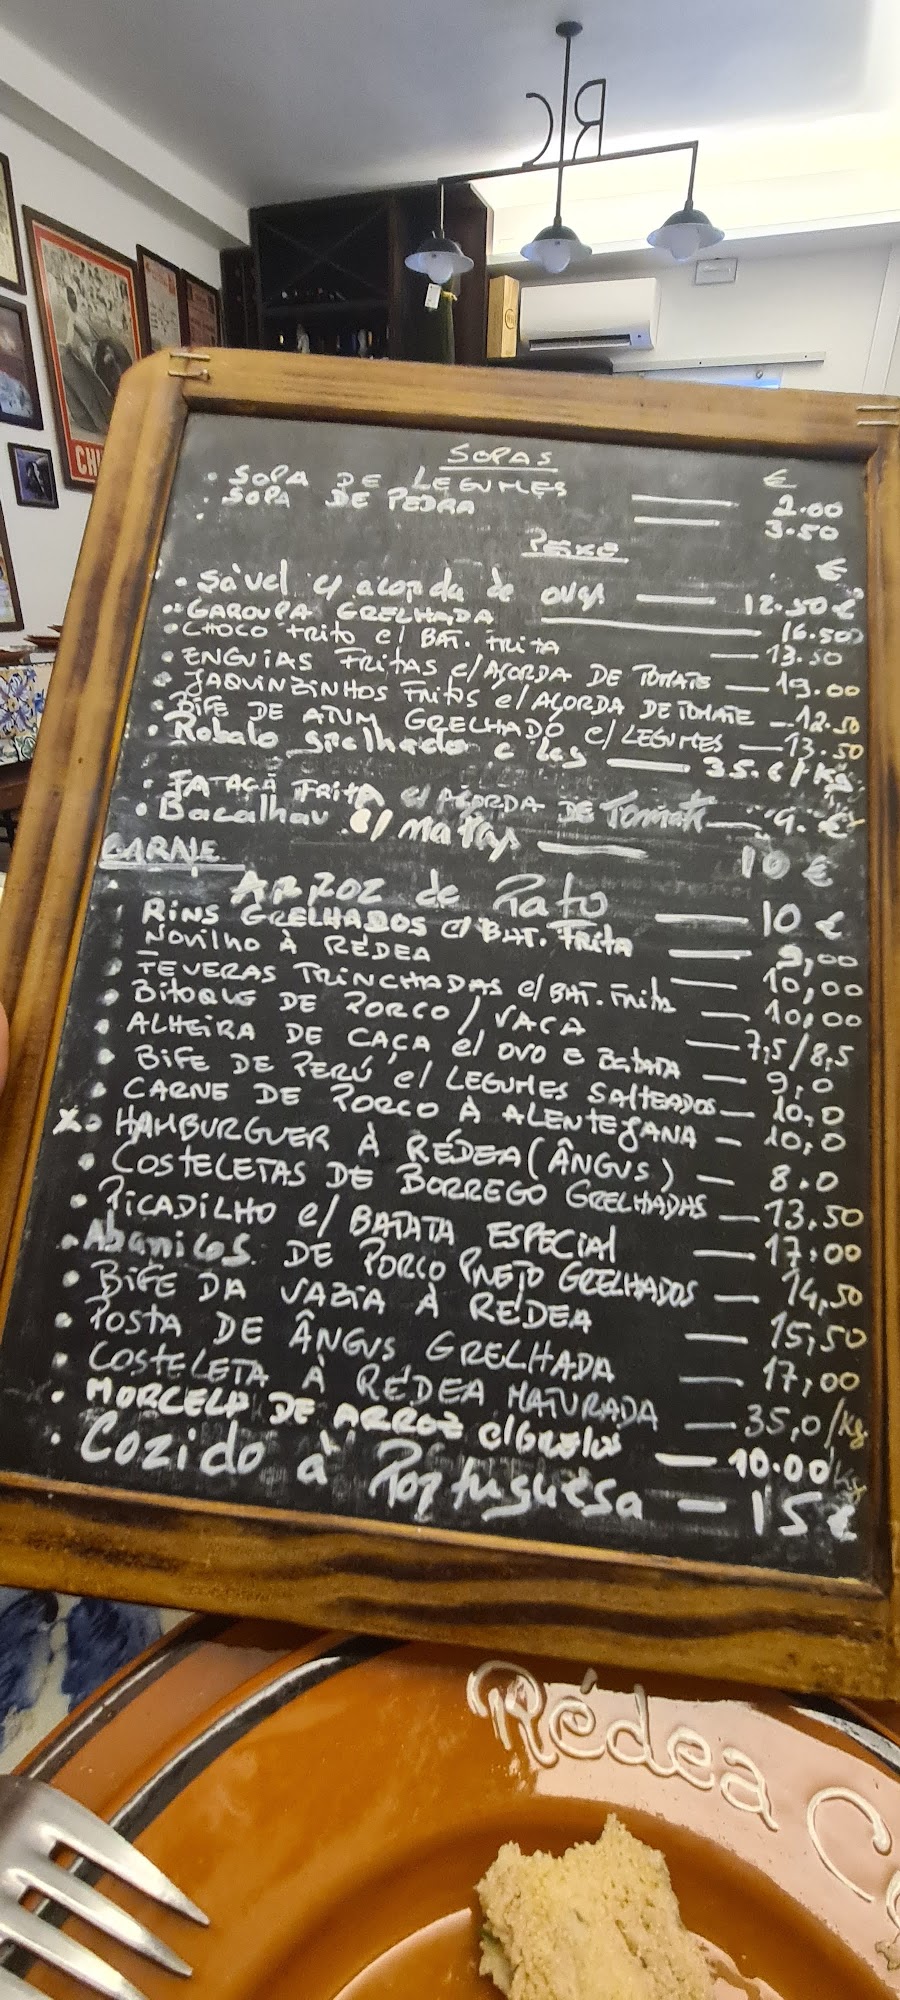 RC
CHI
SOPAS
€
· SOPA DE LEGUMES — 2.00
· SOPA DE PEDRA — 3.50
PEIXE
€
• Sável c/ açorda de ovas — 12.50€
• GAROUPA GRELHADA — 16.50
• CHOCO FRITO C/ BAT. FRITA — 13.50
• ENGUIAS FRITAS C/AÇORDA DE TOMATE — 19.00
• JAQUINZINHOS FRITOS C/ AÇORDA DE TOMATE — 12.50
• BIFE DE ATUM GRELHADO C/ LEGUMES — 13.50
• Robalo grelhado c leg — 35.€/Kg
• FATAÇA FRITA C/ AÇORDA DE Tomate — 9. €
• Bacalhau c/ Mattys — 10 €
CARNE
ARROZ de Pato — 10 €
RINS GRELHADOS C/ BAT. FRITA — 9,00
NOVILHO À RÉDEA — 10,00
• FEVERAS TRINCHADAS C/ BAT. Frita — 10,00
• BITOQUE DE PORCO / VACA — 7,5/8,5
• ALHEIRA DE CAÇA C/ OVO E BATATA — 9,0
• BIFE DE PERÚ C/ LEGUMES SALTEADOS — 10,0
• CARNE DE PORCO À ALENTEJANA — 10,0
X• HAMBURGUER À RÉDEA (ÂNGUS) — 8.0
• COSTELETAS DE BORREGO GRELHADAS — 13,50
• PICADILHO C/ BATATA ESPECIAL — 17.00
• Abanicos DE PORCO PRETO GRELHADOS — 14,50
• BIFE DA VAZIA À RÉDEA — 15,50
• POSTA DE ÂNGUS GRELHADA — 17,00
• COSTELETA À RÉDEA MATURADA — 35,0/Kg
• MORCELA DE ARROZ C/Grelos — 10.00/kg
• Cozido à Portuguesa — 15€
Rédea